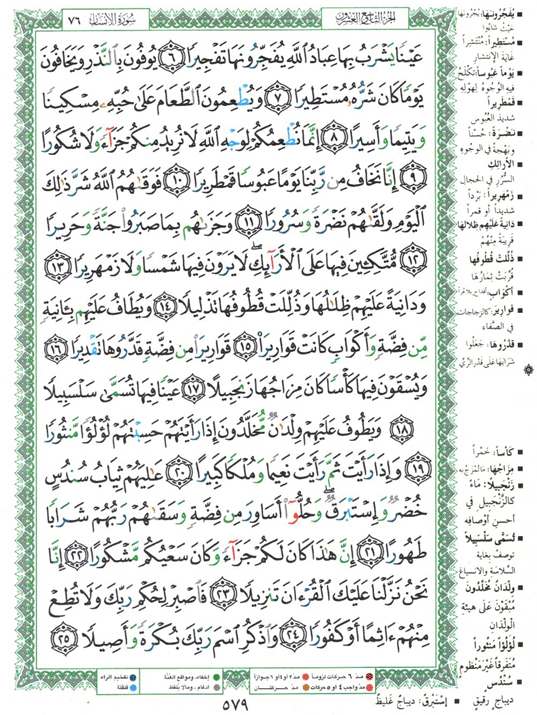 الجزء التاسع والعشرون
سورة الإنسان ٧٦
عَيْنًا يَشْرَبُ بِهَا عِبَادُ اللَّهِ يُفَجِّرُونَهَا تَفْجِيرًا ٦ يُوفُونَ بِالنَّذْرِ وَيَخَافُونَ
يَوْمًا كَانَ شَرُّهُ مُسْتَطِيرًا ٧ وَيُطْعِمُونَ الطَّعَامَ عَلَى حُبِّهِ مِسْكِينًا
وَيَتِيمًا وَأَسِيرًا ٨ إِنَّمَا نُطْعِمُكُمْ لِوَجْهِ اللَّهِ لَا نُرِيدُ مِنكُمْ جَزَآءً وَلَا شُكُورًا
٩ إِنَّا نَخَافُ مِن رَّبِّنَا يَوْمًا عَبُوسًا قَمْطَرِيرًا ١٠ فَوَقَىٰهُمُ اللَّهُ شَرَّ ذَٰلِكَ
الْيَوْمِ وَلَقَّىٰهُمْ نَضْرَةً وَسُرُورًا ١١ وَجَزَىٰهُم بِمَا صَبَرُوا جَنَّةً وَحَرِيرًا
١٢ مُّتَّكِئِينَ فِيهَا عَلَى الْأَرَآئِكِ لَا يَرَوْنَ فِيهَا شَمْسًا وَلَا زَمْهَرِيرًا ١٣
وَدَانِيَةً عَلَيْهِمْ ظِلَٰلُهَا وَذُلِّلَتْ قُطُوفُهَا تَذْلِيلًا ١٤ وَيُطَافُ عَلَيْهِم بِـَٔانِيَةٍ
مِّن فِضَّةٍ وَأَكْوَابٍ كَانَتْ قَوَارِيرَا۠ ١٥ قَوَارِيرَا۠ مِن فِضَّةٍ قَدَّرُوهَا تَقْدِيرًا ١٦
وَيُسْقَوْنَ فِيهَا كَأْسًا كَانَ مِزَاجُهَا زَنجَبِيلًا ١٧ عَيْنًا فِيهَا تُسَمَّىٰ سَلْسَبِيلًا
١٨ وَيَطُوفُ عَلَيْهِمْ وِلْدَٰنٌ مُّخَلَّدُونَ إِذَا رَأَيْتَهُمْ حَسِبْتَهُمْ لُؤْلُؤًا مَّنثُورًا
١٩ وَإِذَا رَأَيْتَ ثَمَّ رَأَيْتَ نَعِيمًا وَمُلْكًا كَبِيرًا ٢٠ عَٰلِيَهُمْ ثِيَابُ سُندُسٍ
خُضْرٌ وَإِسْتَبْرَقٌ وَحُلُّوٓا أَسَاوِرَ مِن فِضَّةٍ وَسَقَىٰهُمْ رَبُّهُمْ شَرَابًا
طَهُورًا ٢١ إِنَّ هَٰذَا كَانَ لَكُمْ جَزَآءً وَكَانَ سَعْيُكُم مَّشْكُورًا ٢٢ إِنَّا
نَحْنُ نَزَّلْنَا عَلَيْكَ الْقُرْءَانَ تَنزِيلًا ٢٣ فَاصْبِرْ لِحُكْمِ رَبِّكَ وَلَا تُطِعْ
مِنْهُمْ ءَاثِمًا أَوْ كَفُورًا ٢٤ وَاذْكُرِ اسْمَ رَبِّكَ بُكْرَةً وَأَصِيلًا ٢٥
يُفَجِّرُونَهَا: يُجْرُونَهَا
حيث شاؤوا
مُسْتَطِيرًا: مُنتشراً
غاية الانتشار
يَوْمًا عَبُوسًا: تكلح
فيه الوجوه لهوله
قَمْطَرِيرًا:
شديد العبوس
نَضْرَةً: حُسناً
وبهجة في الوجوه
الأَرَائِكِ:
السُّرُر في الحجال
زَمْهَرِيرًا: برداً
شديداً أو قمراً
دَانِيَةً عَلَيْهِمْ ظِلَالُهَا
قريبة منهم
ذُلِّلَتْ قُطُوفُهَا
قُرِّبَتْ ثمارها
قَوَارِيرَ: كالزجاجات
في الصفاء
قَدَّرُوهَا: جعلوا
شرابها على قدر الرِّيّ
كَأْسًا: خمراً
مِزَاجُهَا: ما تمزج به
زَنجَبِيلًا: ماءً
كالزنجبيل في
أحسن أوصافه
تُسَمَّى سَلْسَبِيلًا
توصف بغاية
السلاسة والانسياغ
وِلْدَانٌ مُخَلَّدُونَ
مُبْقَوْن على هيئة
الولدان
لُؤْلُؤًا مَنثُورًا
متفرقاً غير منظوم
سُندُسٍ
ديباج رقيق
إِسْتَبْرَقٌ: ديباج غليظ
مد ٦ حركات لزوماً
مد ٢ أو ٤ أو ٦ جوازاً
إخفاء، ومواقع الغنة
تفخيم الراء
مد واجب ٤ أو ٥ حركات
مد حركتان
ادغام، وما لا يلفظ
قلقلة
٥٧٩